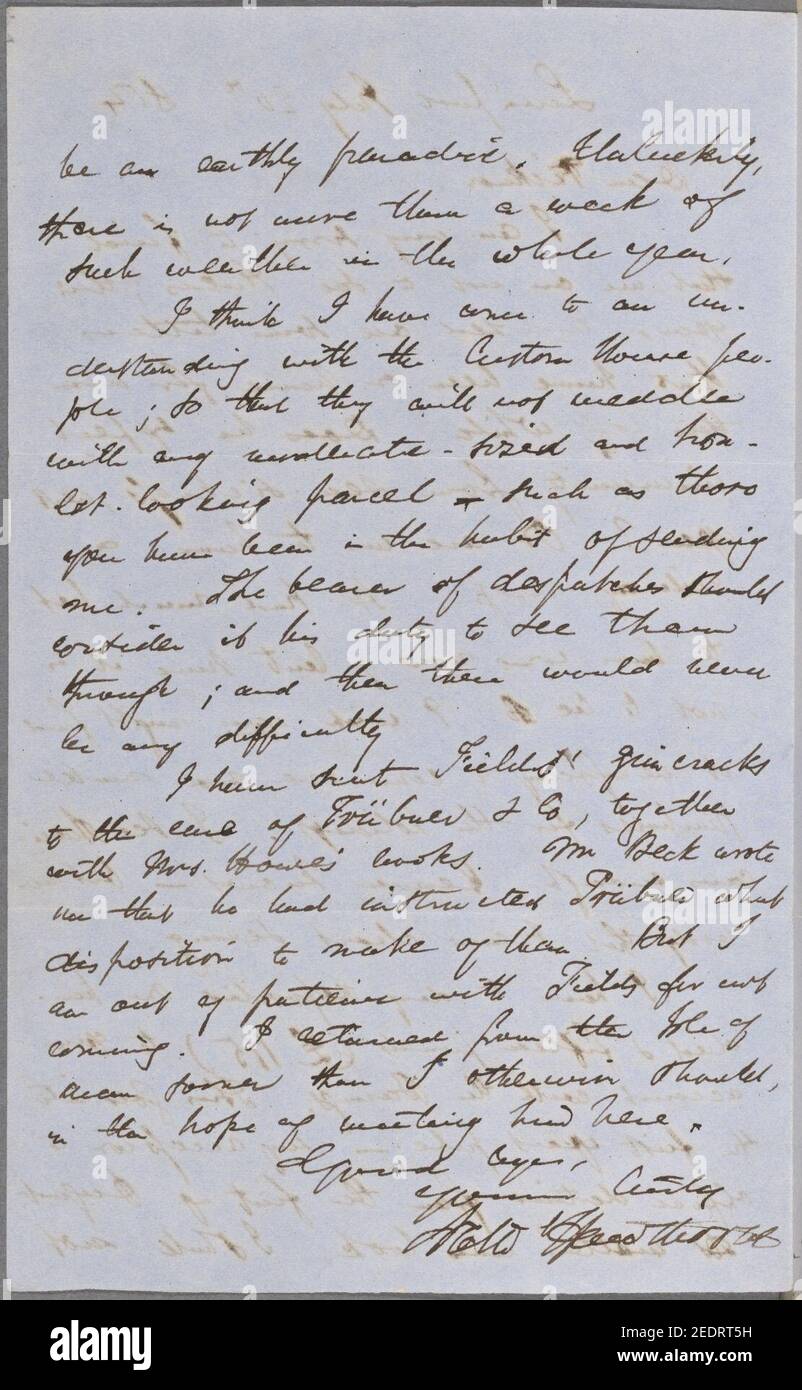 be an earthly paradise. Unluckily,
there is not more than a week of
such weather in the whole year.
I think I have come to an un-
derstanding with the Custom House peo-
ple; so that they will not meddle
with any moderate-sized and hon-
est-looking parcel - such as those
you have been in the habit of sending
me. The bearer of despatches should
consider it his duty to see them
through; and then there would never
be any difficulty
I have sent Fields' gimcracks
to the care of Trübner & Co, together
with Mrs. Howe's books. Mr Beck wrote
me that he had instructed Trübner what
disposition to make of them. But I
am out of patience with Fields for not
coming. I returned from the Isle of
Man sooner than I otherwise should,
in the hope of meeting him here.
Good bye,
Your
Nath Hawthorne
alamy
Image ID: 2EDRT5H
www.alamy.com